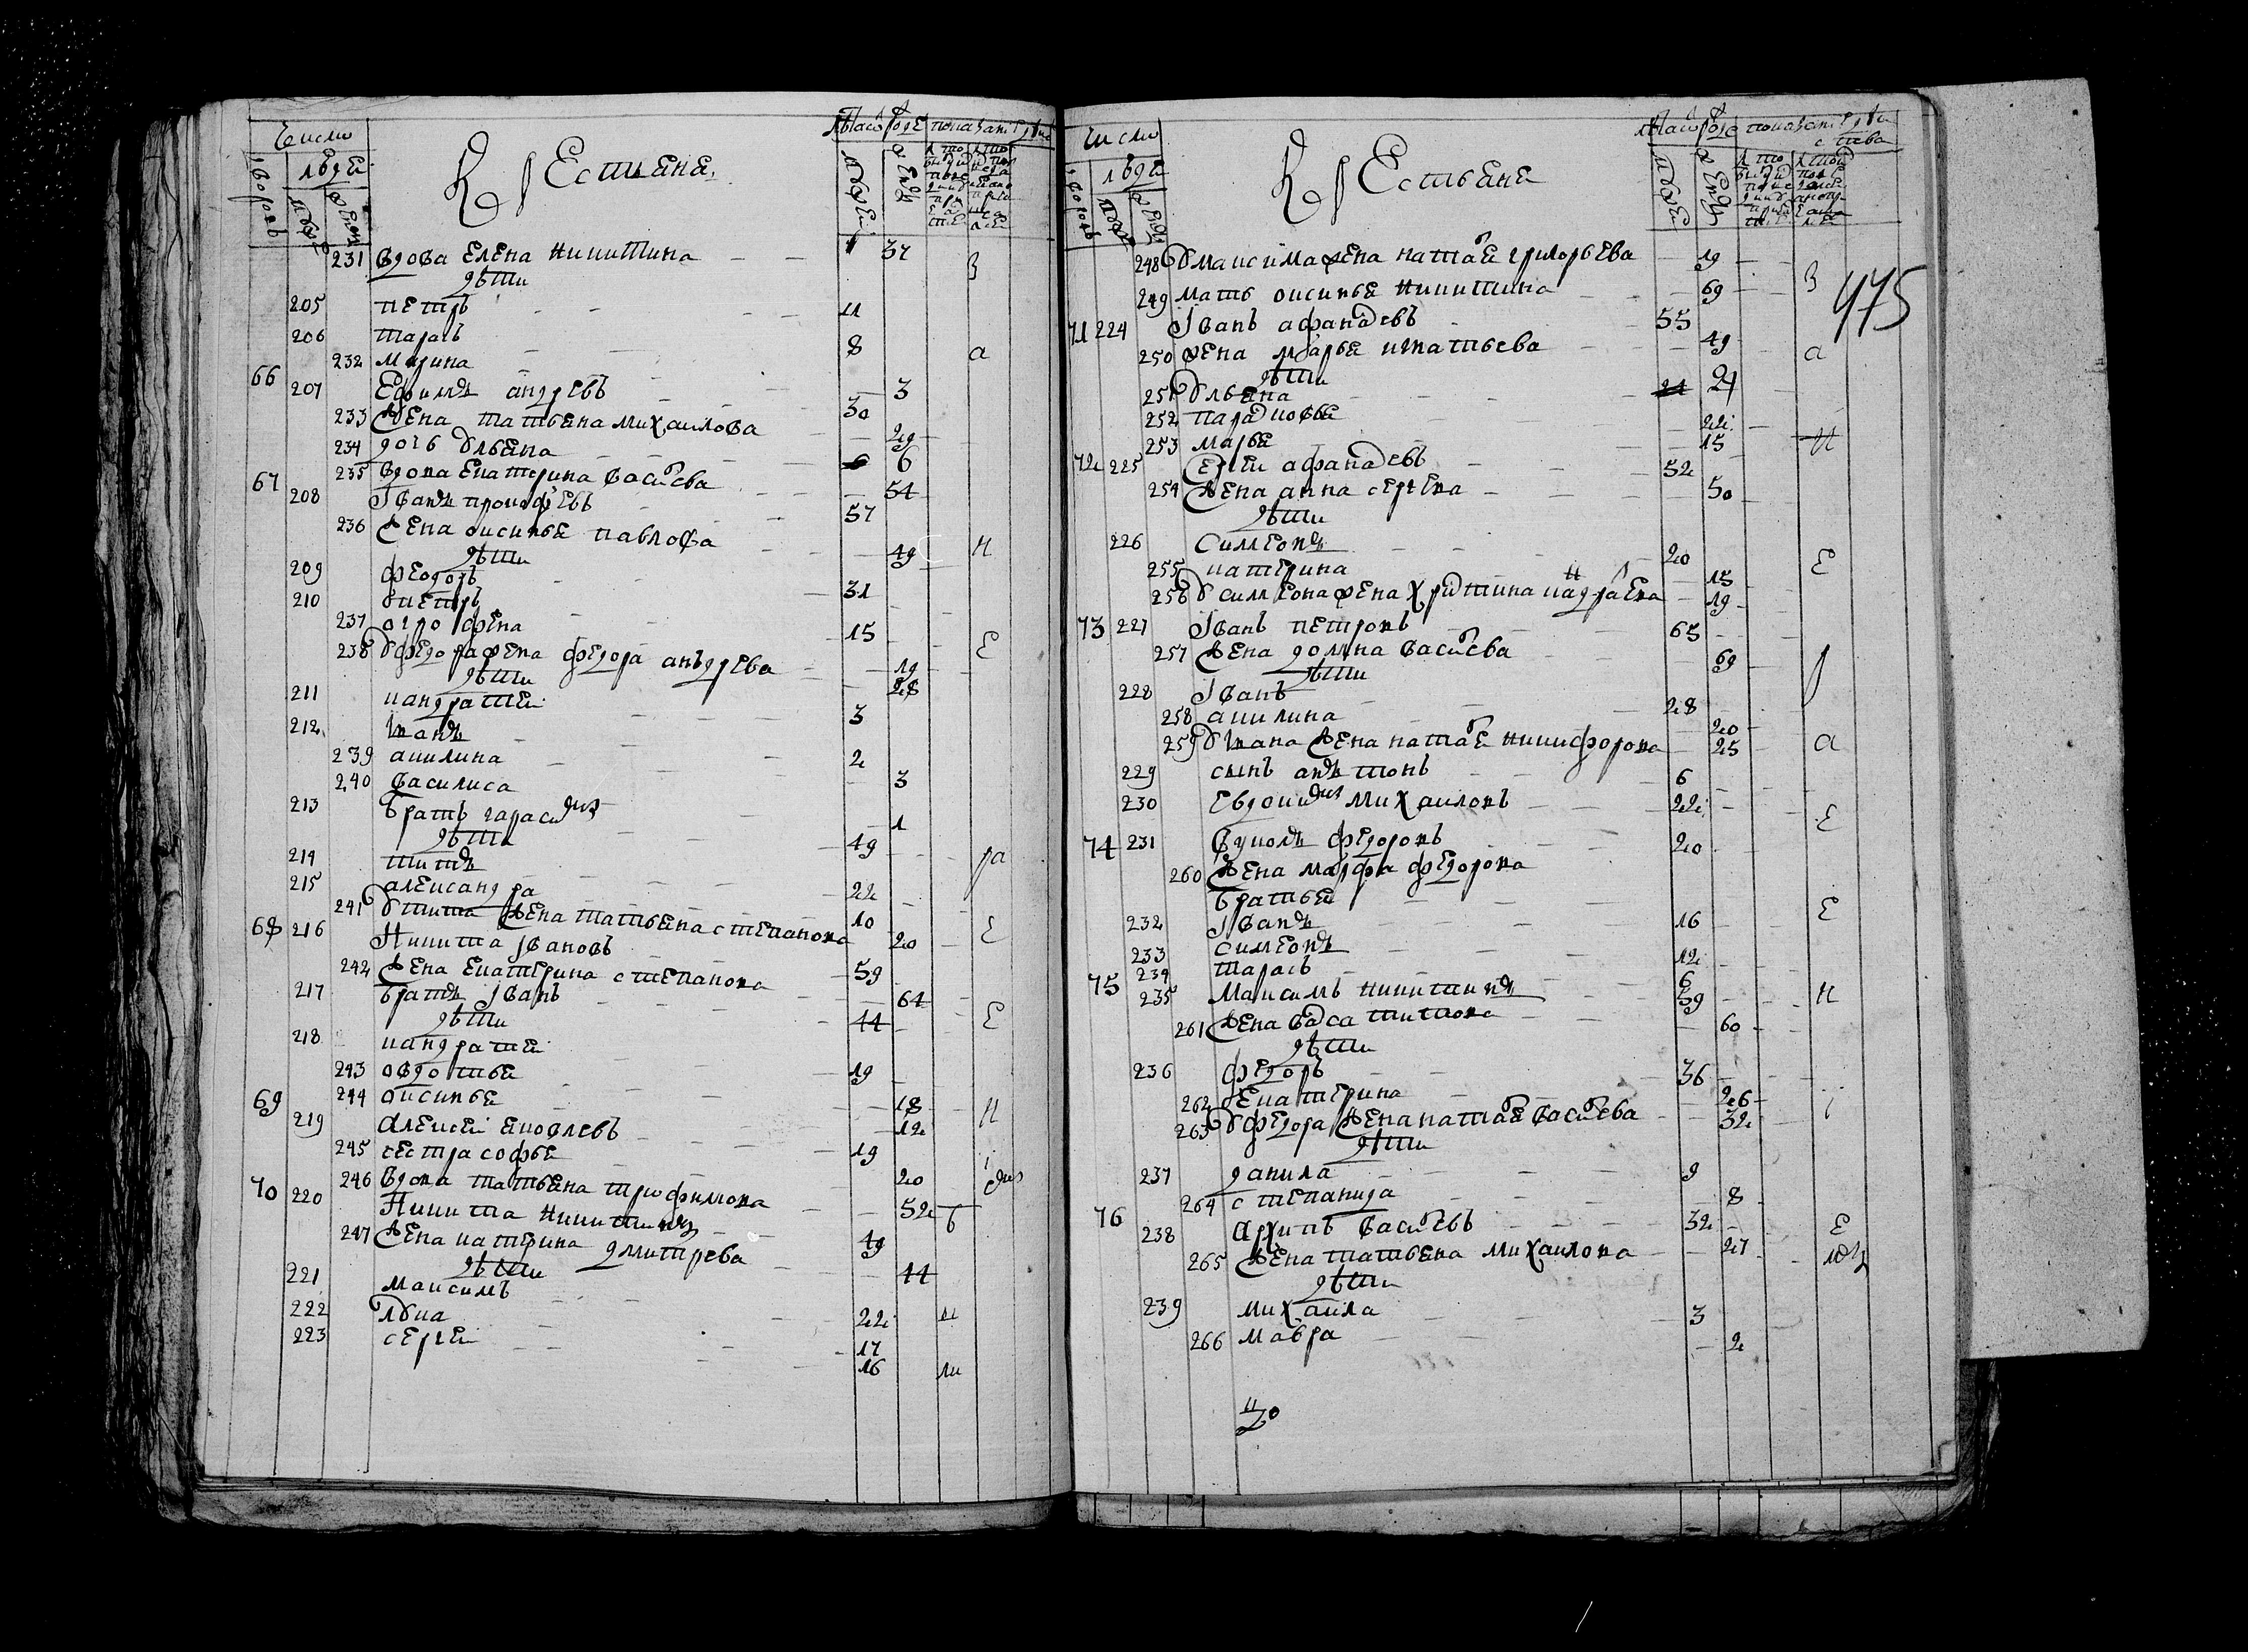 Число
людей
Крестьяне
231 вдова Елена никитина 37
дѣти
205 петръ 11
206 тарасъ 8
232 Марина 3
66 207 Ефимъ андревъ 30
233 жена татьяна михаилова 29
234 дочь ульяна 6
235 вдова Екатерина васиева 54
67 208 Іванъ прокофѣевъ 57
236 жена оксинья павлова 49
дѣти
209 феодоръ 31
210 петръ 15
237 огрофена 19
238 у федора жена федора анъдрева 28
дѣти
211 кандратей 3
212 іванъ 2
239 акилина 3
240 василиса 1
213 братъ гарасим 49
дѣти
214 титъ 22
215 александра 10
241 у тита жена татьяна степанова 20
68 216 Никита івановъ 59
242 жена Екатерина степанова 64
217 братъ Іванъ 44
дѣти
218 кандратей 19
243 овдотья 18
244 оксинья 12
69 219 алексей яковлевъ 19
245 сестра софья 20
246 вдова татьяна трофимова 52
70 220 Никита никитинъ 49
247 жена катерина дмитрева 44
дѣти
221 максимъ 22
222 лука 17
223 сергей 16
Число
людей
Крестьяне
475
248 у максима жена наталья григорьева 19
249 мать оксинья никитина 69
71 224 Іванъ афанасевъ 55
250 жена марья игнатьева 49
дѣти
251 ульяна 21
252 парасковья 22
253 марья 15
72 225 Сергей афанасевъ 52
254 жена анна сергѣева 50
дѣти
226 симеонъ 20
255 катерина 15
256 у симеона жена христина кадратева 19
73 227 Іванъ петровъ 65
257 жена домна васиева 69
дѣти
228 Іванъ 28
258 акилина 20
259 у івана жена наталья никифорова 25
229 сынъ антонъ 6
230 Евдоким михаиловъ 22
74 231 вуколъ федоровъ 20
260 жена марфа федорова
братья
232 Іванъ 16
233 симеонъ 12
234 тарасъ 6
75 235 Максимъ никитинъ 59
261 жена васса титова 60
дѣти
236 федоръ 36
262 Екатерина 26
263 у федора жена наталья васиева 32
дѣти
237 данила 9
264 степанида 8
76 238 архипъ васиевъ 32
265 жена татьяна михаилова 27
дѣти
239 михаила 3
266 мавра 2